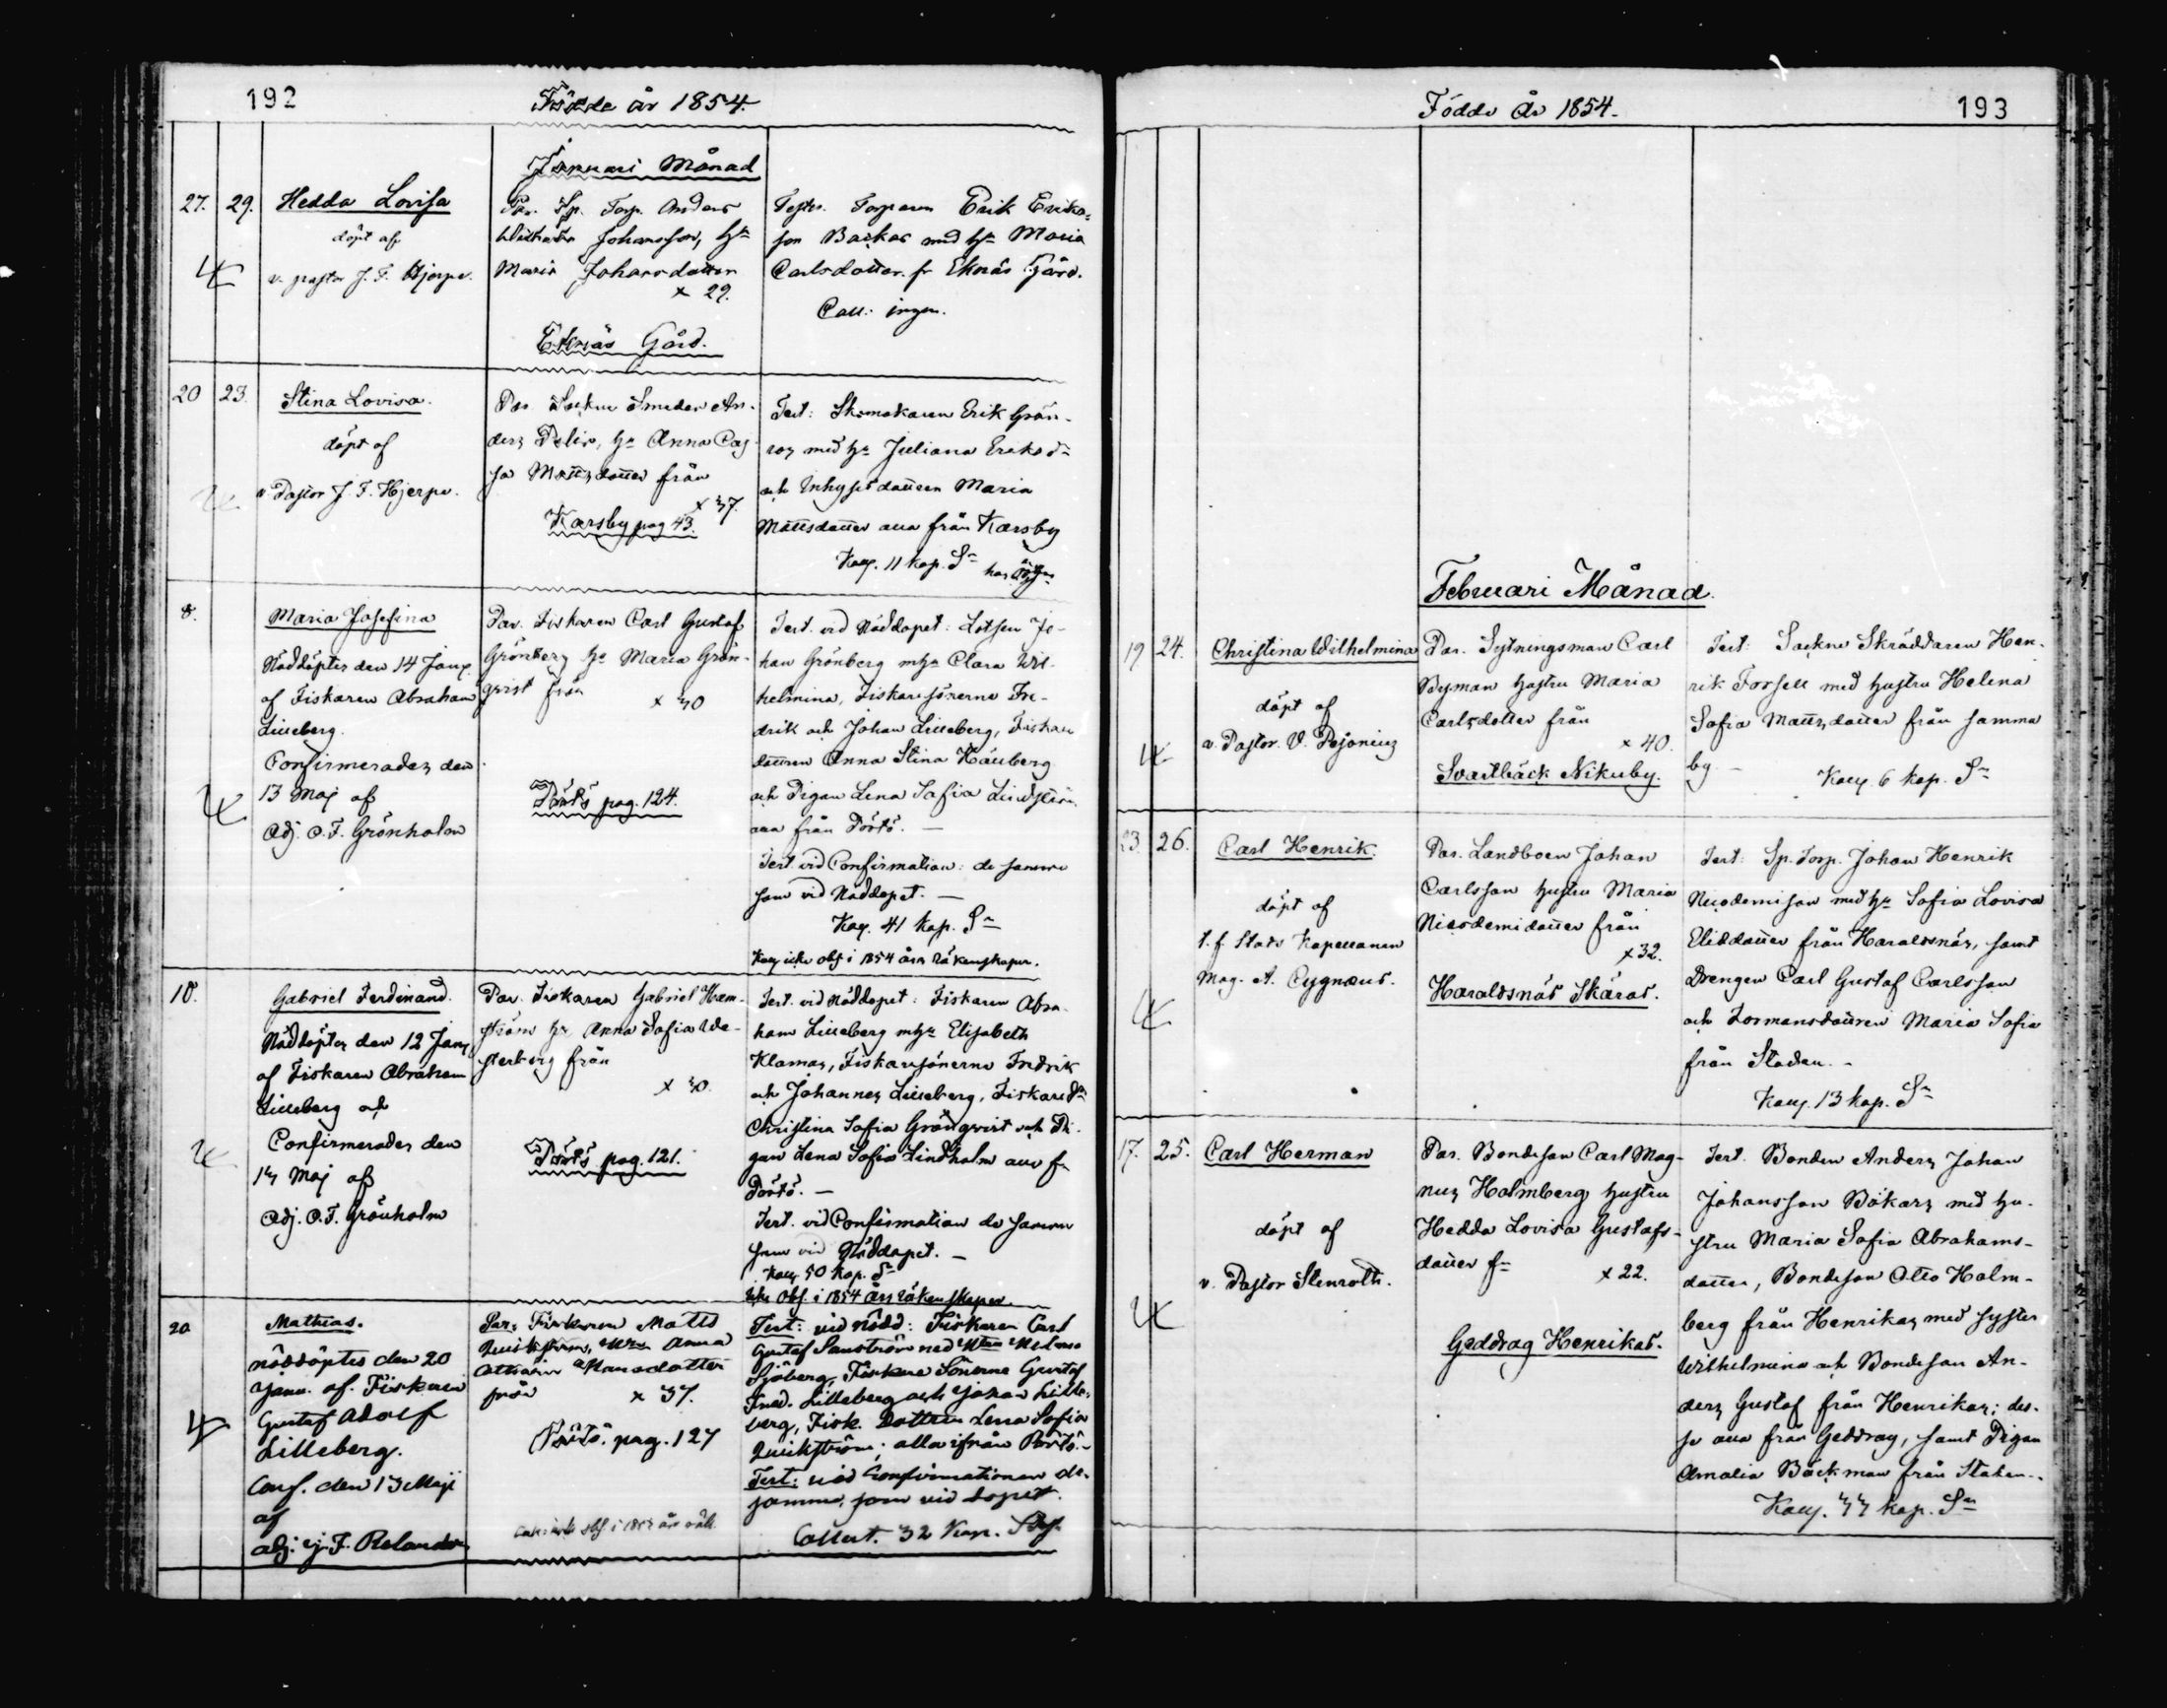 192
Födde år 1854.
Januari Månad
27. 29. Hedda Lovisa
döpt af
v. pastor J. F. Hjerpe.
Par. Sp. Torp. Anders
Johansson, hu
Maria Johansdotter
x 29.
Ekenäs Gård.
Testes. Torparen Erik Eriks-
son Backas med hu Maria
Carlsdotter fr Ekenäs Gård.
Coll: ingen.
20 23. Stina Lovisa.
döpt af
v. Pastor J. F. Hjerpe.
Par. Sockne Smeden An-
ders Pelin, hu Anna Caj-
sa Mattsdotter från
x 37.
Karsby pag 43.
Test: Skomakaren Erik Grön-
roz med hu Juliana Eriksdr
och Inhyses dottern Maria
Mattsdotter alla från Karsby
Koll. 11 kop. Sr
8. Maria Josefina
Nöddöptes den 14 Jany
af Fiskaren Abraham
Lilleberg.
Confirmerades den
13 Maj af
Adj. O. F. Grönholm
Par. Fiskaren Carl Gustaf
Grönberg hu Maria Grön-
qvist från
x 30
Pörtö pag. 124.
Test. vid Nöddopet: Lotsen Jo-
han Grönberg m hu Clara Wil-
helmina, Fiskaresönerne Fre-
drik och Johan Lilleberg, Fiskare
dottren Anna Stina
och Pigan Lena Sofia Lindström
alla från Pörtö. —
Test. vid Confirmation: de samme
som vid Nöddopet. —
Koll. 41 kop. Sr
Koll icke obs i 1854 års räkenskaper.
10. Gabriel Ferdinand.
Nöddöptes den 12 Jany
af Fiskaren Abraham
Lilleberg och
Confirmerades den
13 Maj af
Adj. O. F. Grönholm
Par. Fiskaren Gabriel Ham-
ström hu Anna Sofia We-
sterberg från
x 30.
Pörtö pag. 121.
Test. vid Nöddopet: Fiskaren Abra-
ham Lilleberg m hu Elisabeth
Klamas, Fiskaresönerne Fredrik
och Johannes Lilleberg, Fiskaredr
Christina Sofia Grönqvist och Pi-
gan Lena Sofia Lindholm alla fr
Pörtö. —
Test. vid Confirmation de samme
som vid Nöddopet. —
Koll 50 kop. Sr
icke Obs. i 1854 års räkenskaper.
20 Mathias.
nöddöptes den 20
Janu. af Fiskaren
Gustaf Adolf
Lilleberg.
Conf. den 13 Maji
af
adj: F. Relander.
Par: Fiskaren Matts
Quickström, Anna
från x 37.
Pörtö. pag. 127
Test: vid Nödd: Fiskaren Carl
Gustaf Sanström med
Sjöberg, Fiskare Sönerne Gustaf
Fred. Lilleberg och Johan Lille-
berg, Fisk. Dottren Lena Sofia
Quickström; alla ifrån Pörtö. -
Test: vid Confirmationen de-
samme, som vid dopet.
Collect. 32 Kop. Slfr
Födde år 1854.
193
Februari Månad.
19 24. Christina Wilhelmina
döpt af
v. Pastor V. Pajonius
Par. Sytningsman Carl
Byman hustru Maria
Carlsdotter från
x 40.
Svartbäck Nikuby.
Test: Sockne Skräddaren Hen-
rik Forsell med hustru Helena
Sofia Mattsdotter från samma
by. —
Koll. 6 kop. Sr
23. 26. Carl Henrik.
döpt af
t. f. Stads Kapellanen
Mag. A. Cygnæus.
Par. Landboen Johan
Carlsson hustru Maria
Nicodemidotter från
x 32.
Haraldsnäs Skäras.
Test: Sp. Torp. Johan Henrik
Nicodemison med hu Sofia Lovisa
Elidotter från Haraldsnäs, samt
Drengen Carl Gustaf Carlsson
och Formansdottren Maria Sofia
från Staden. -
Koll. 13 kop. Sr
17. 25. Carl Herman
döpt af
v. Pastor Stenroth.
Par. Bondeson Carl Mag-
nus Holmberg hustru
Hedda Lovisa Gustafs-
dotter fr
x 22.
Geddrag Henrikas.
Test. Bonden Anders Johan
Johansson Bökars med hu-
stru Maria Sofia Abrahams-
dotter, Bondeson Otto Holm-
berg från Henrikas med syster
Wilhelmina och Bondeson An-
ders Gustaf från Henrikas; des-
se alla från Geddrag, samt Pigan
Amalia Bäckman från Staden. -
Koll. 77 kop. Sr